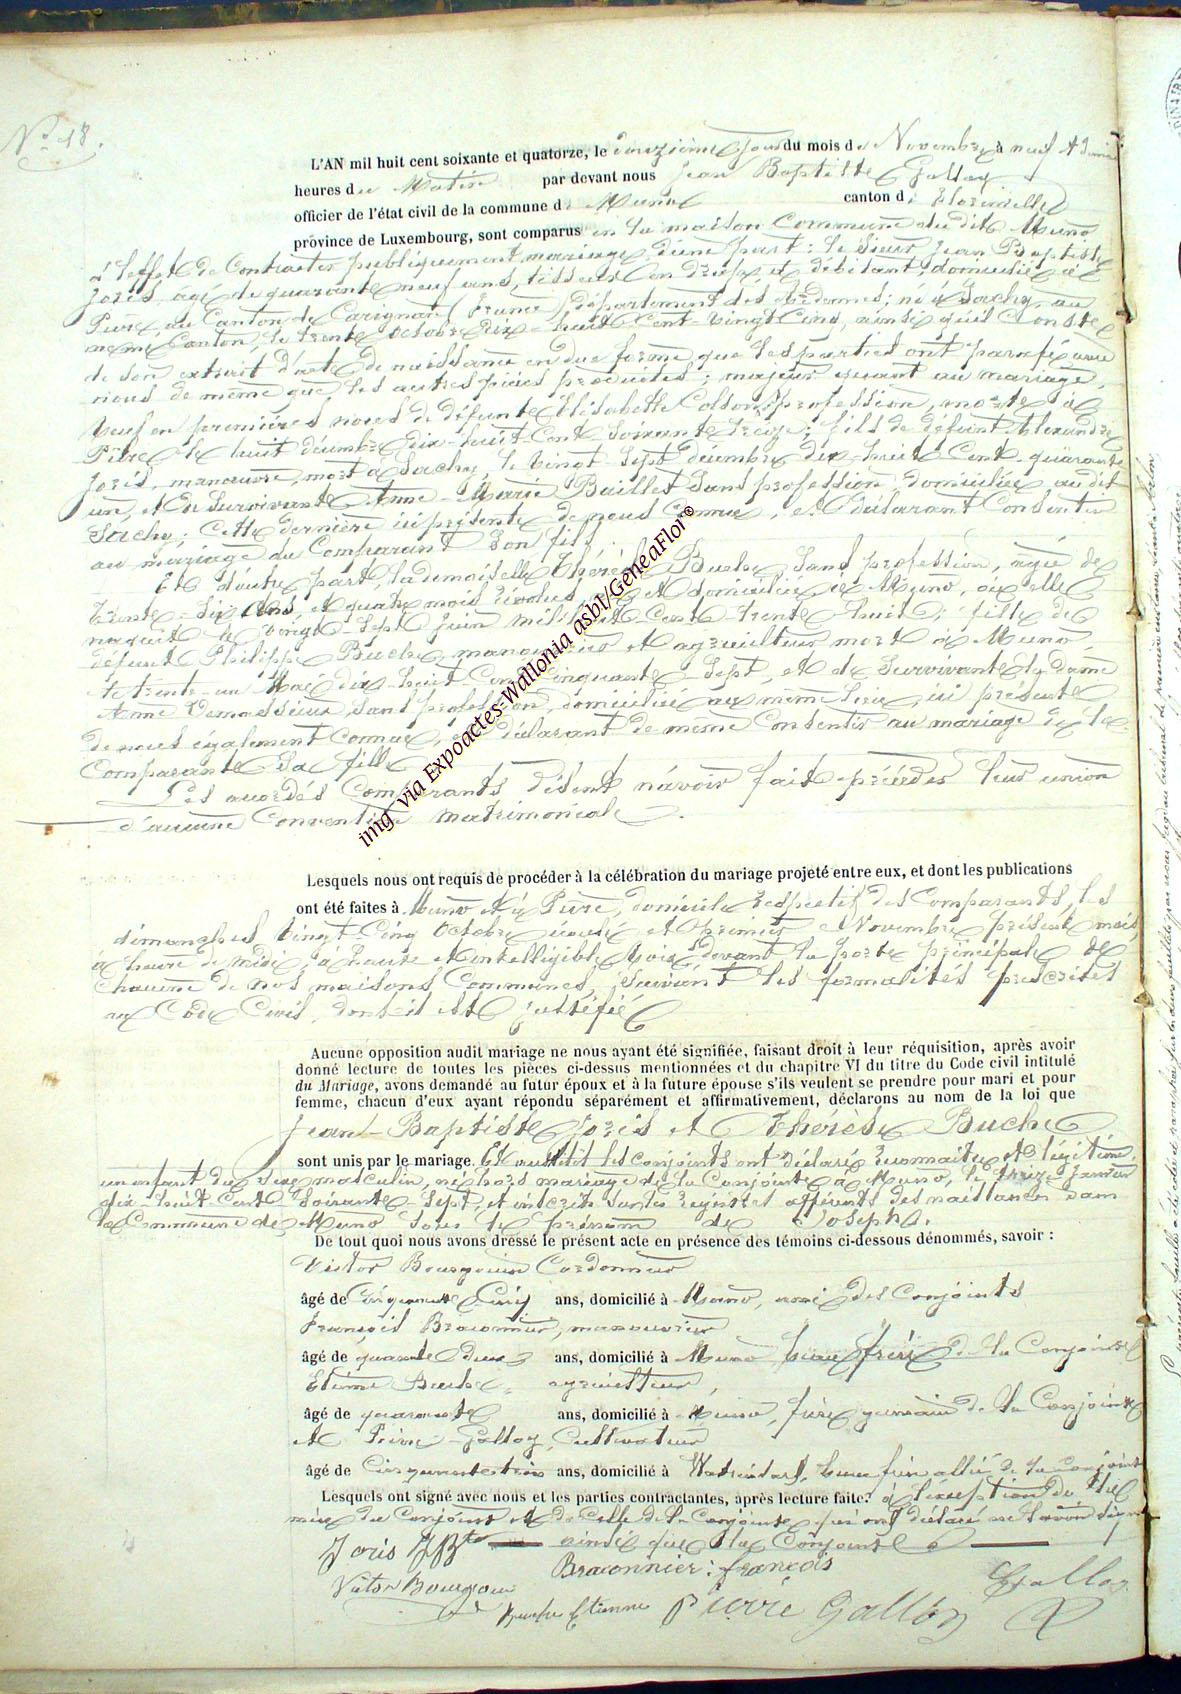 No 18.
L'AN mil huit cent soixante et quatorze, le onzième jour du mois de Novembre à neuf & demie
heures du Matin par devant nous Jean Baptiste Galloy
officier de l'état civil de la commune de Muno canton de Florenville
province de Luxembourg, sont comparus en la maison Commune du dit Muno
à l'effet de Contracter publiquement mariage, d'une part: le Sieur Jean Baptiste
Joris, âgé de quarante neuf ans, tisseur en draps, et débitant, domicilié à
Pure, au Canton de Carignan (France) département des Ardennes; né à Sachy, au
même Canton, le trente Octobre dix-huit Cent-vingt Cinq, ainsi qu'il Conste
de son extrait d'acte de naissance en due forme, que les parties ont paraféavec
nous de même que les autres pièces produites; majeur quant au mariage,
Veuf en premières noces de défunte Elisabette Colson, profession, morte à
Pure le huit décembre dix-huit Cent Soixante treize; fils de défunt Alexandre
Joris, manoeuvre, mort à Sachy, le vingt-Sept décembre dix huit Cent quarante
un, et de Survivante Anne-Marie Baillet Sans profession, domiciliée au dit
Sachy; Cette dernière ici présente de nous Connue, et déclarant Consentir
au mariage du Comparant Son fils.
Et d'autre part, la demoiselle Thérèse Buche Sans profession, agée de
trente-six Ans, et quatre mois révolus, et domiciliée à Muno, où elle
naquit le vingt-Sept Juin mil huit-Cent-trente-huit; fille de
défunt Philippe Buche, manoeuvre et agriculteur mort à Muno
le trente-un Mai dix-huit Cent Cinquante-Sept, et de Survivante la Dame
Anne Sans profession, domiciliée au même lieu, ici présente
de nous également Connue, et déclarant de même Consentir au mariage de la
Comparante Sa fille.
Les Comparants disent n'avoir fait précéder leur union
d'aucune Convention matrimoniale.
img via Expoactes-Wallonia asbl/GeneaFloi©
Lesquels nous ont requis de procéder à la célébration du mariage projeté entre eux, et dont les publications
ont été faites à Muno et à Pure, domicile respectif des Comparants, les
dimanches vingt-Cinq Octobre et Premier Novembre présent mois,
à heure de midi, à haute et intelligible voix, devant la porte principale de
Chacune de nos maisons Communes, Suivant les formalités prescrites
au Code Civil, dont-il est justifié
Aucune opposition audit mariage ne nous ayant été signifiée, faisant droit à leur réquisition, après avoir
donné lecture de toutes les pièces ci-dessus mentionnées et du chapitre VI du titre du Code civil intitulé
du Mariage, avons demandé au futur époux et à la future épouse s'ils veulent se prendre pour mari et pour
femme, chacun d'eux ayant répondu séparément et affirmativement, déclarons au nom de la loi que
Jean-Baptiste Joris et Thérèse Buche
sont unis par le mariage. Et aussitôt les conjoints ont déclaré reconnaître et légitimer
un enfant du Sexe masculin, né hors mariage de la Conjointe à Muno, le treize Janvier
dix-huit Cent-Soixante-Sept, et inscrit sur les registres afférents des naissances dans
la Commune de Muno Sous le prénom de Joseph.
De tout quoi nous avons dressé le présent acte en présence des témoins ci-dessous dénommés, savoir :
Victor Bourgouin Cordonnier
âgé de Cinquante Cinq ans, domicilié à Muno, ami des Conjoints
François Braconnier, manouvrier
âgé de quarante deux ans, domicilié à Muno beau frère de la Conjointe
Etienne Buche, agriculteur,
âgé de quarante ans, domicilié à Muno, frère germain de la Conjointe
et Pierre Galloy, Cultivateur
âgé de Cinquante trois ans, domicilié à beau frère allié de la conjointe
Lesquels ont signé avec nous et les parties contractantes, après lecture faite. à l'exception de la
mère du Conjoint et de Celle de la Conjointe qui ont déclaré ne savoir signer
ainsi que la Conjointe
Joris JBte
Braconnier: françois
Victor Bourgouin
Buche Etienne
Pierre Gallöy
Galloy